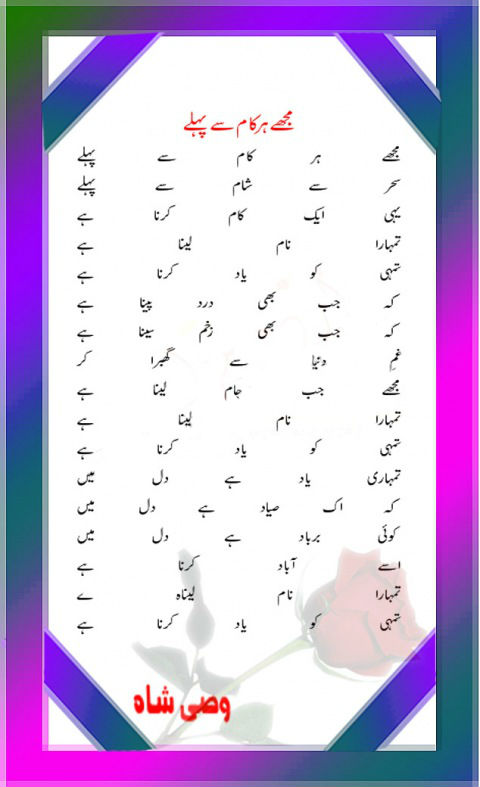 مجھے ہر کام سے پہلے
مجھے ہر کام سے پہلے
سحر سے شام سے پہلے
یہی ایک کام کرنا ہے
تمہارا نام لینا ہے
تمہی کو یاد کرنا ہے
کہ جب بھی درد پینا ہے
کہ جب بھی زخم سینا ہے
غمِ دنیا سے گھبرا کر
مجھے جب جام لینا ہے
تمہارا نام لینا ہے
تمہی کو یاد کرنا ہے
تمہاری یاد ہے دل میں
کہ اک صیاد ہے دل میں
کوئی برباد ہے دل میں
اسے آباد کرنا ہے
تمہارا نام لیناہ ے
تمہی کو یاد کرنا ہے
وصی شاہ